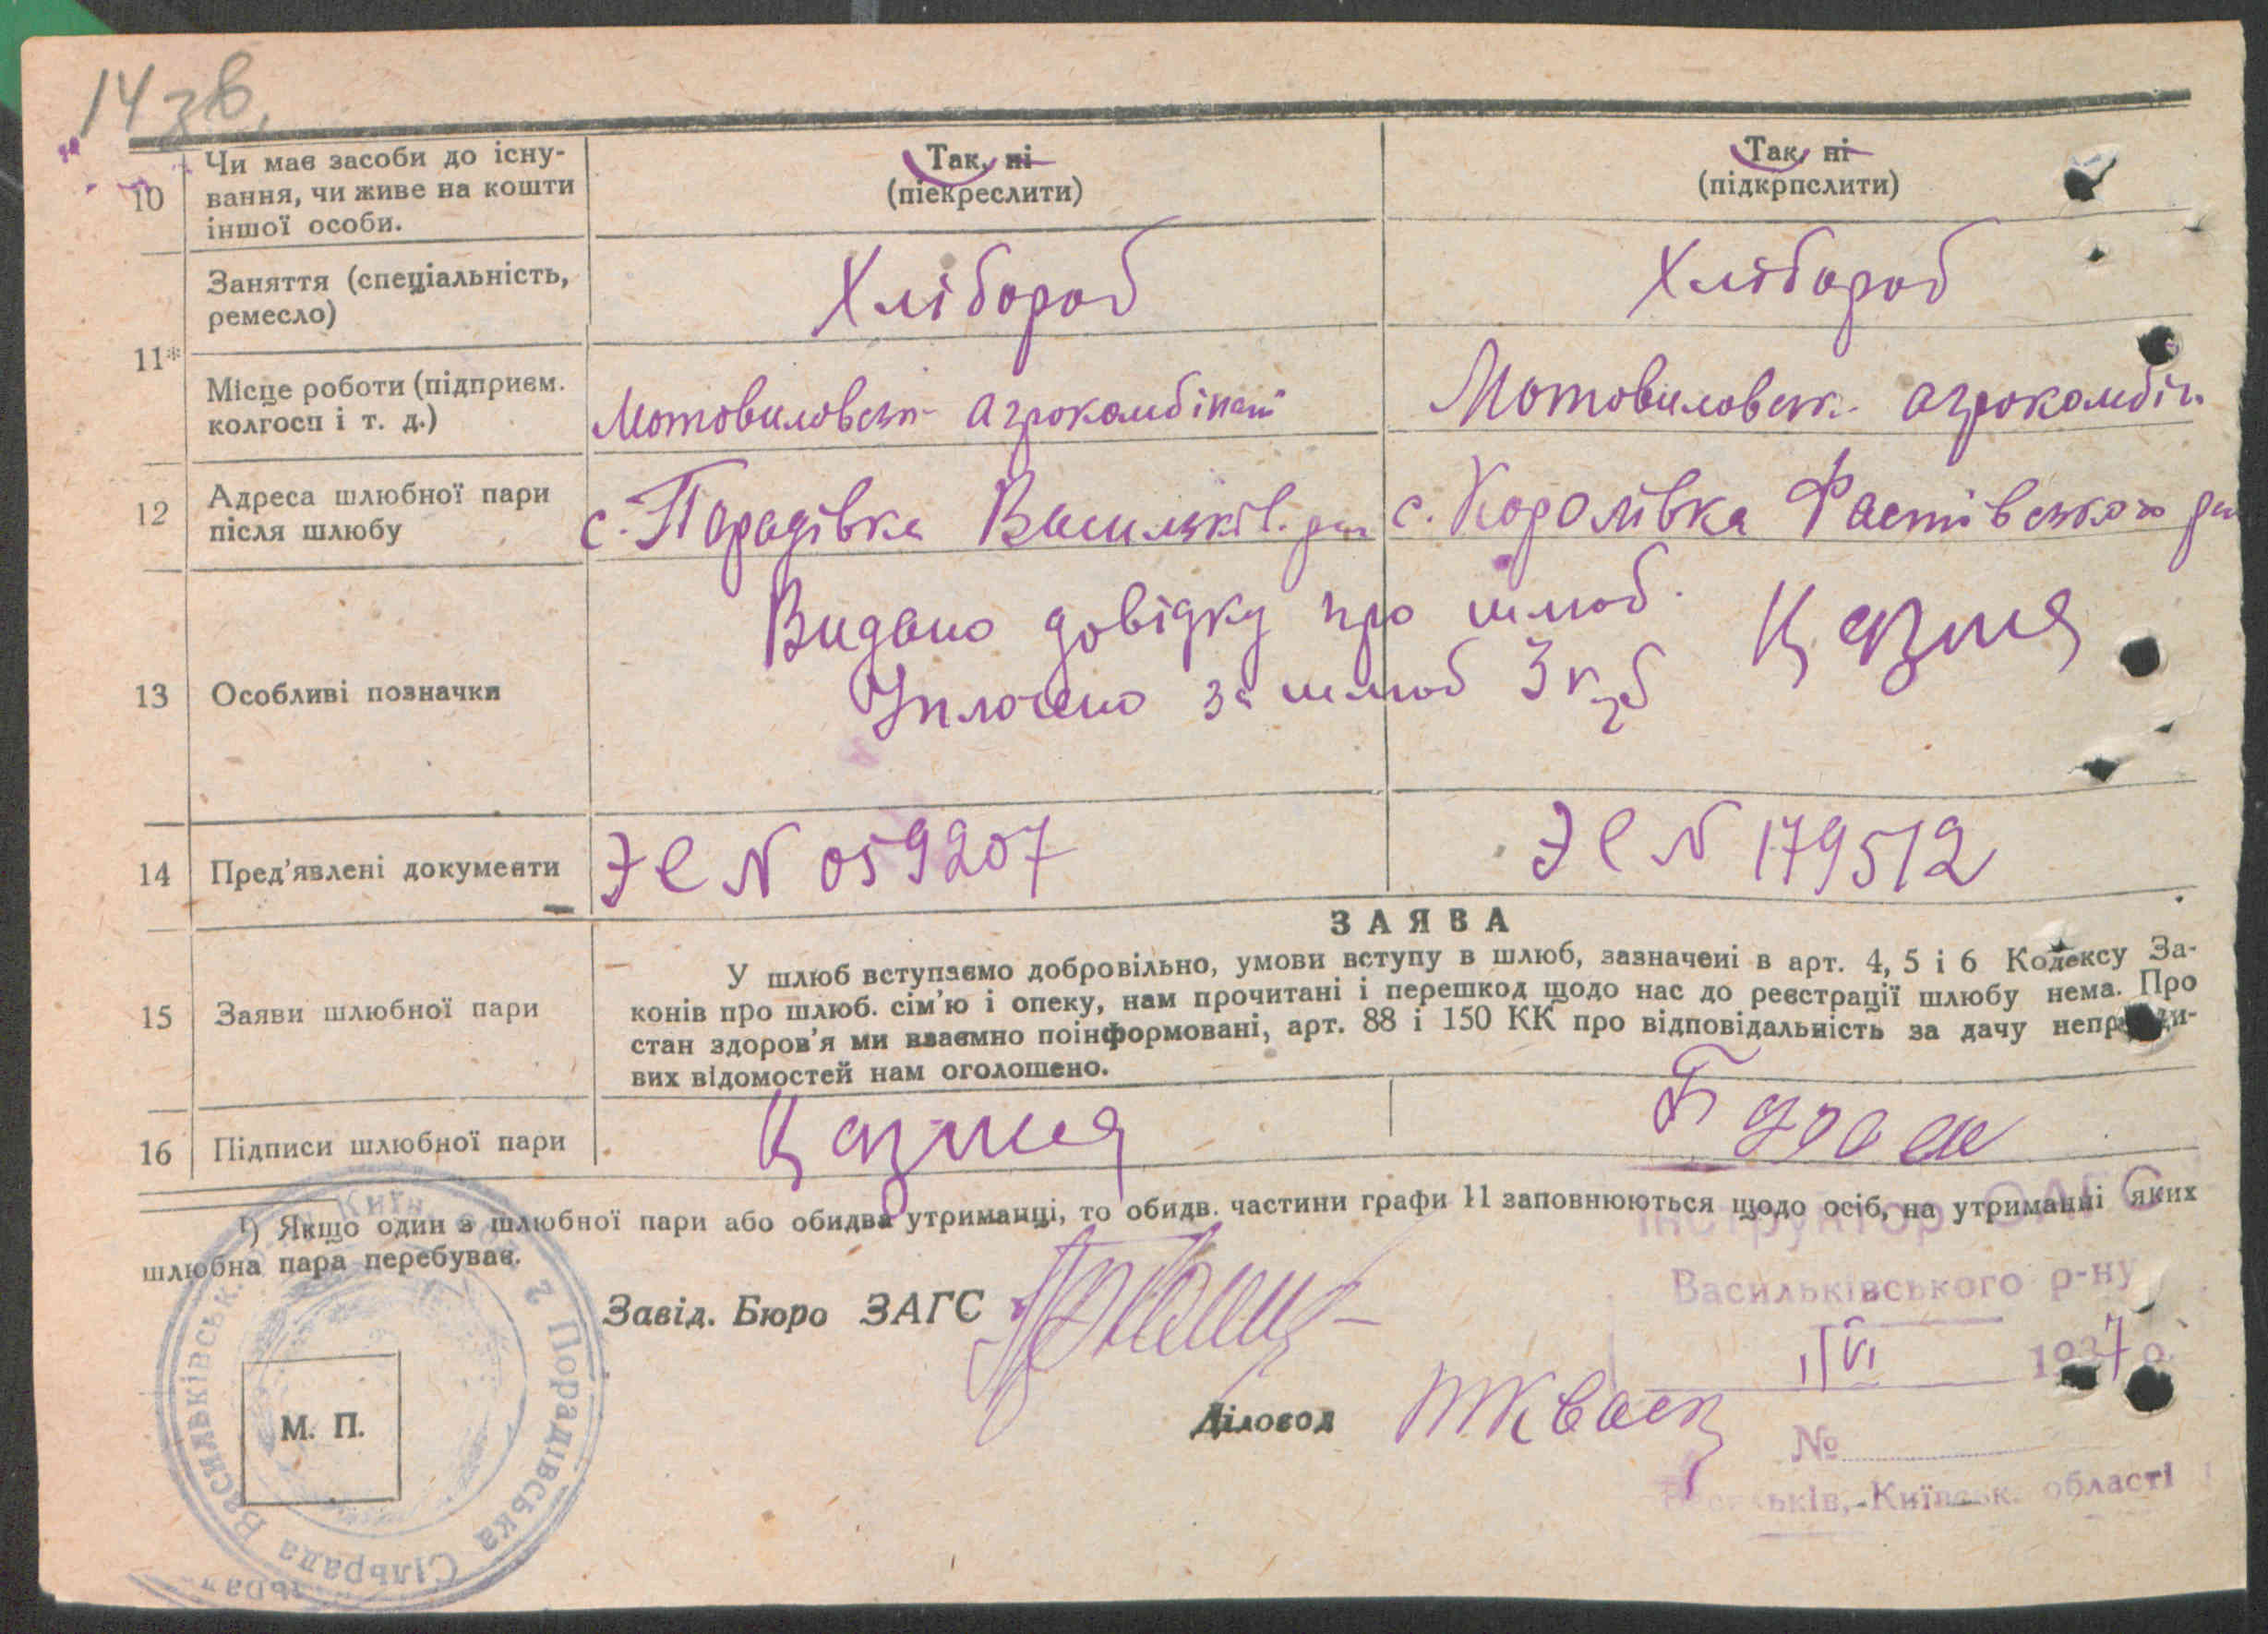 14 зв.
10 Чи має засоби до існу-
вання, чи живе на кошти
іншої особи.
Так, ні
(піекреслити)
Так, ні
(підкрпслити)
11*
Заняття (спеціальність,
ремесло)
Хлібороб
Хлібороб
Місце роботи (підприєм.
колгосп і т. д.)
Мотовиловськ агрокомбінат
Мотовиловськ. агрокомбін.
12 Адреса шлюбної пари
після шлюбу
с. Порадівка Васильків. рай
с. Королівка Фастівського рай
13 Особливі позначки
Видано довідку про шлюб.
Уплочено за шлюб 3 крб
14 Пред'явлені документи
ЭС N 059207
ЭС N 179512
ЗАЯВА
15 Заяви шлюбної пари
У шлюб вступаємо добровільно, умови вступу в шлюб, зазначені в арт. 4, 5 і 6 Кодексу За-
конів про шлюб. сім'ю і опеку, нам прочитані і перешкод щодо нас до реєстрації шлюбу нема. Про
стан здоров'я ми взаємно поінформовані, арт. 88 і 150 КК про відповідальність за дачу неправди-
вих відомостей нам оголошено.
16 Підписи шлюбної пари
¹) Якщо один з шлюбної пари або обидва утриманці, то обидв. частини графи 11 заповнюються щодо осіб, на утриманні яких
шлюбна пара перебуває.
Інструктор ЗАГС
Васильківського р-ну
1937 р.
№
Васильків, Київськ. області
Завід. Бюро ЗАГС
Діловод
М. П.
Порадівська Сільрада Васильківськ.